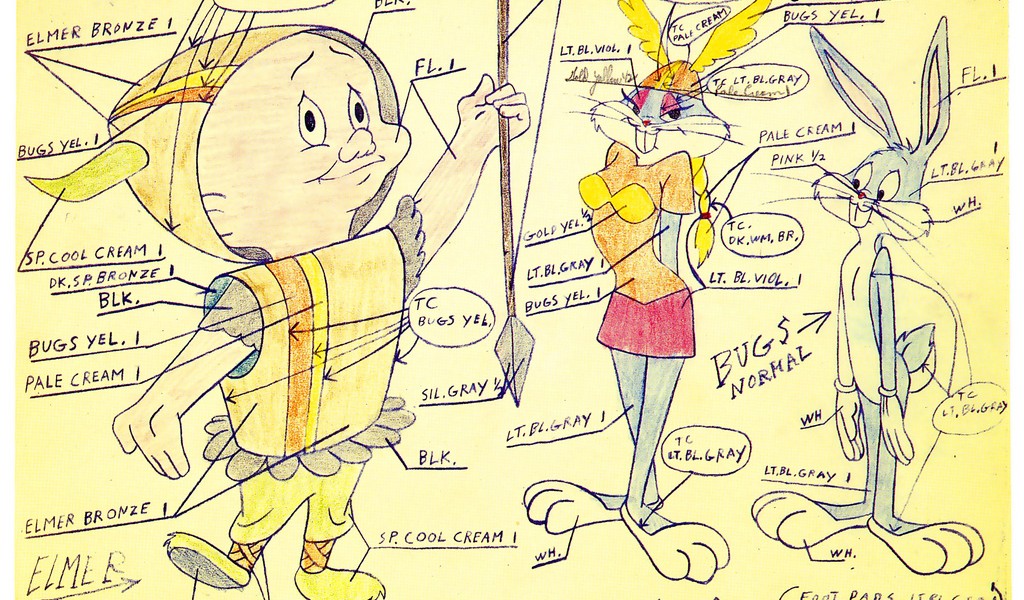 ELMER BRONZE 1
BLK.
FL. 1
BUGS YEL. 1
SP. COOL CREAM 1
DK. SP. BRONZE 1
BLK.
BUGS YEL. 1
PALE CREAM 1
TC
BUGS YEL.
SIL. GRAY ½
BLK.
ELMER BRONZE 1
SP. COOL CREAM 1
ELMER
TC
PALE CREAM
BUGS YEL. 1
LT. BL. VIOL. 1
Gold yellow ½
TC LT. BL. GRAY
Pale Cream 1
PALE CREAM 1
PINK ½
GOLD YEL. ½
LT. BL. GRAY 1
BUGS YEL. 1
TC.
DK. WM. BR.
LT. BL. VIOL. 1
LT. BL. GRAY 1
TC
LT. BL. GRAY
WH.
BUGS
NORMAL
FL. 1
LT. BL. GRAY 1
WH.
WH
TC
LT. BL. GRAY
LT. BL. GRAY 1
WH.
(FOOT PADS LT. BL. GRAY)